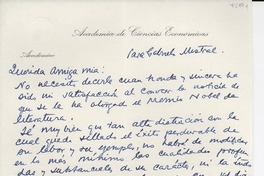 Academia de Ciencias Económicas
Académico
Para Gabriela Mistral.
Querida Amiga mía:
No necesito decirle cuan honda y sincera ha
sido mi satisfacción al conocer la noticia de
que se le ha otorgado el Premio Nobel de
literatura.
Sé muy bien que tan alta distinción con la
cual queda sellado el éxito perdurable de
su labor, y su ejemplo, no habrá de modificar
en lo más mínimo las cualidades propias
y substanciales de su carácter, ni la